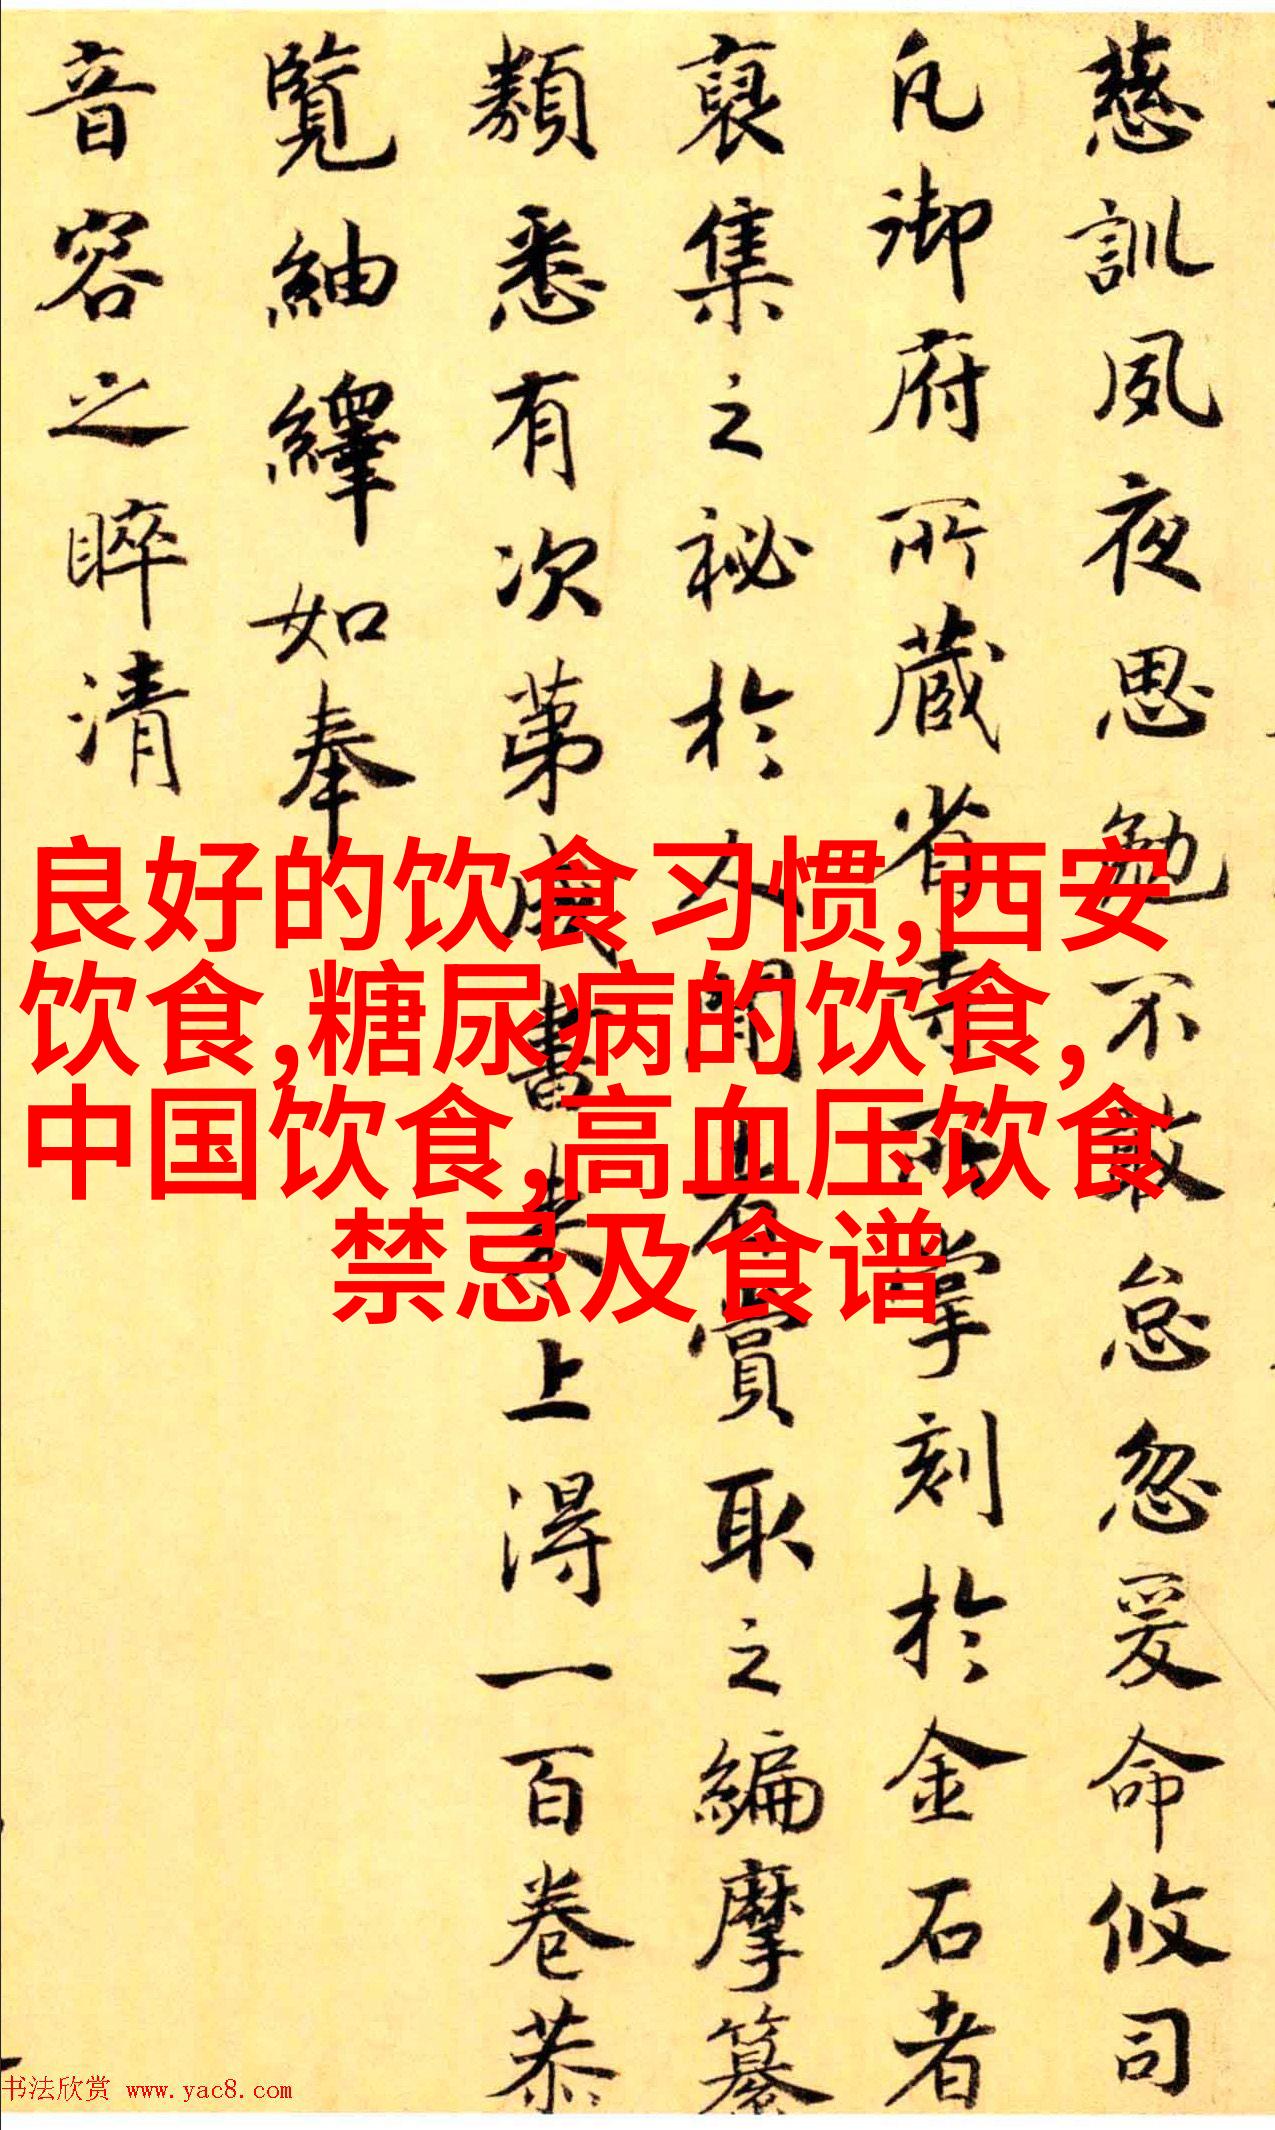 慈訓夙夜思勉不敢怠忽爰命攸司
凡御府所蔵省寺所掌刻於金石者
裒集之祕於人間者賞取之編摩纂
類悉有次第成書来上得一百卷恭
覽紬繹如奉
音容之睟清
良好的饮食习惯,西安
饮食,糖尿病的饮食,
中国饮食,高血压饮食
禁忌及食谱
书法欣赏 www.yac8.com